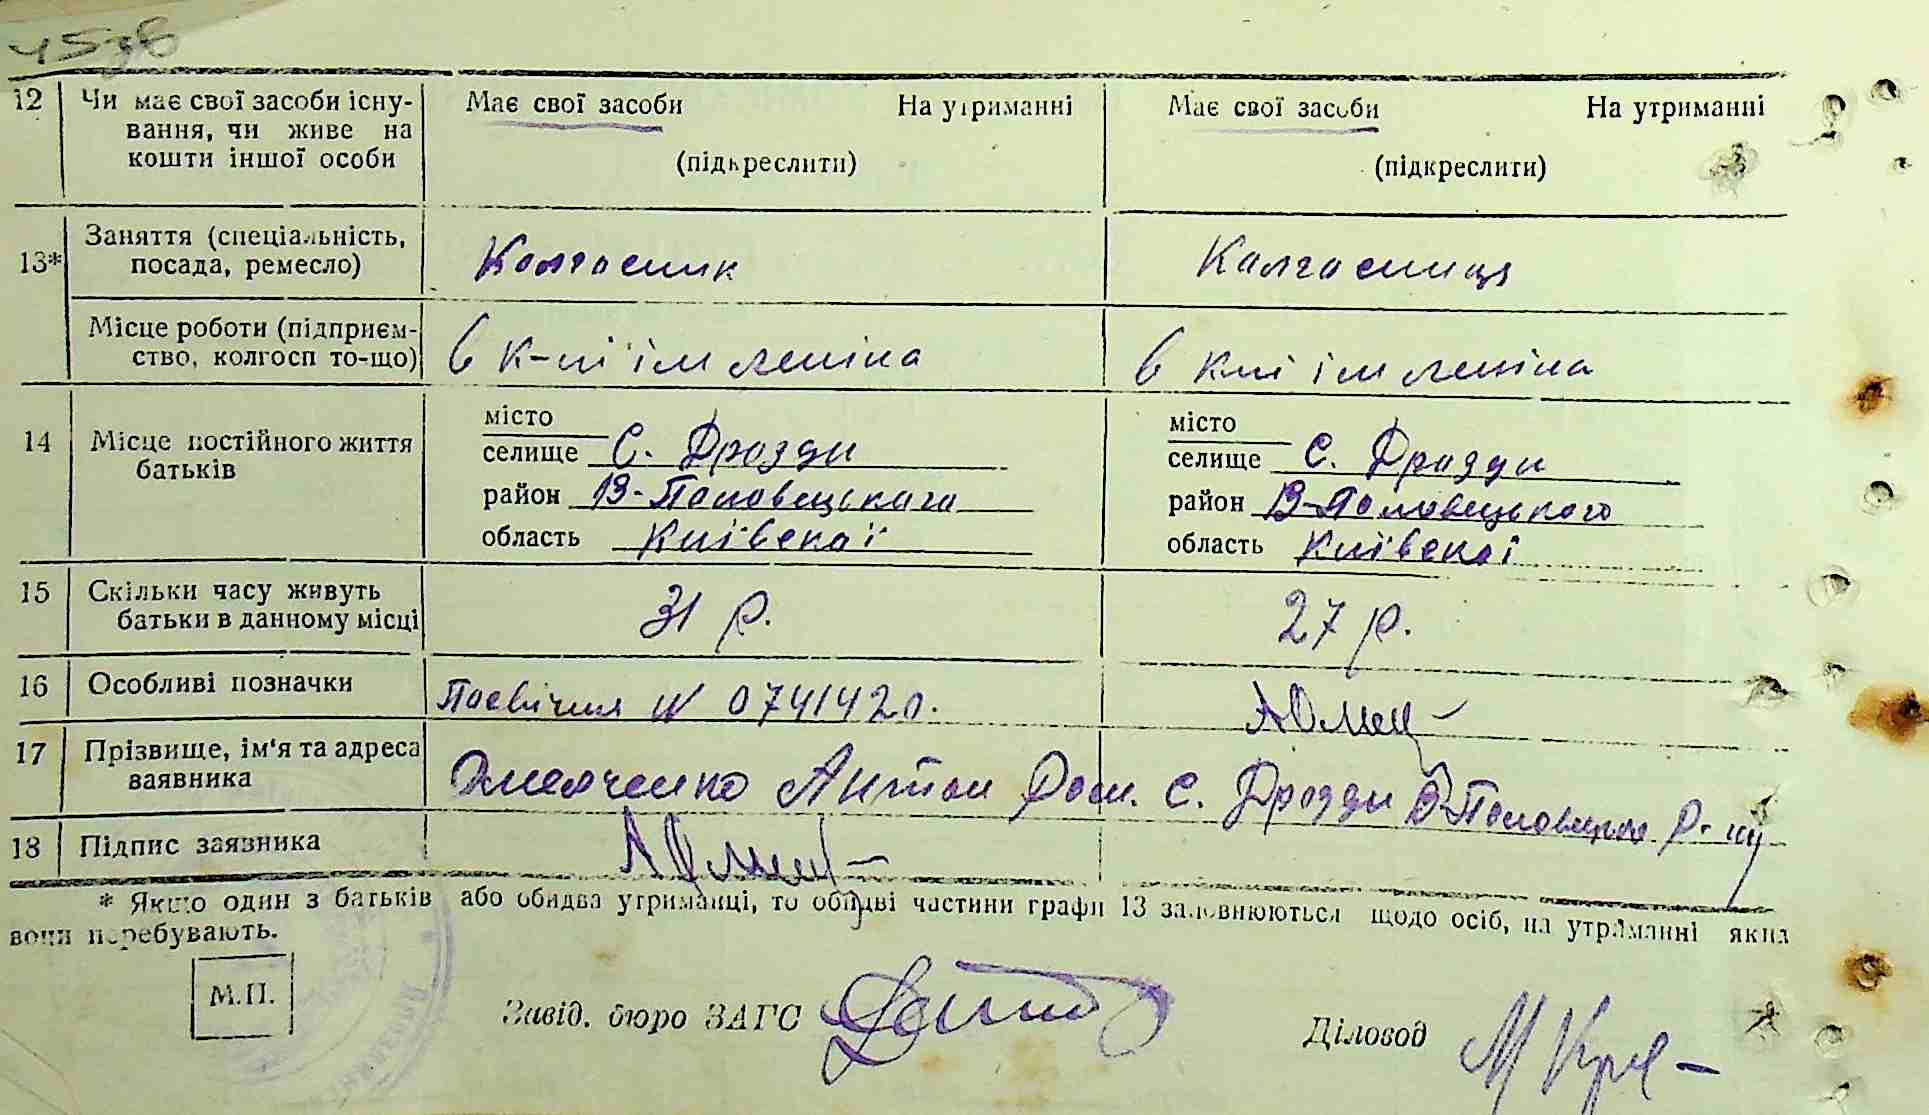 12 Чи має свої засоби існу- Має свої засоби На утриманні Має свої засоби На утриманні
вання, чи живе на
кошти іншої особи (підкреслити) (підкреслити)
13* Заняття (спеціальність, Колгосник Колгосниця
посада, ремесло)
Місце роботи (підприєм- в к-пі ім леніна в кпі ім леніна
ство, колгосп то-що)
місто місто
14 Місце постійного життя селище С. Дрозди селище С. Дрозди
батьків район В-Половецького район В-Половецького
область Київскої область Київскої
15 Скільки часу живуть 31 р. 27 р.
батьки в данному місці
16 Особливі позначки N 074142
17 Прізвище, ім'я та адреса Омельченко Антон с. Дрозди В-Половецьк. р-ну
заявника
18 Підпис заявника
* Якщо один з батьків або обидва утриманці, то обидві частини графи 13 заповнюються щодо осіб, на утриманні яких
вони перебувають.
М.П. Завід. бюро ЗАГС Діловод